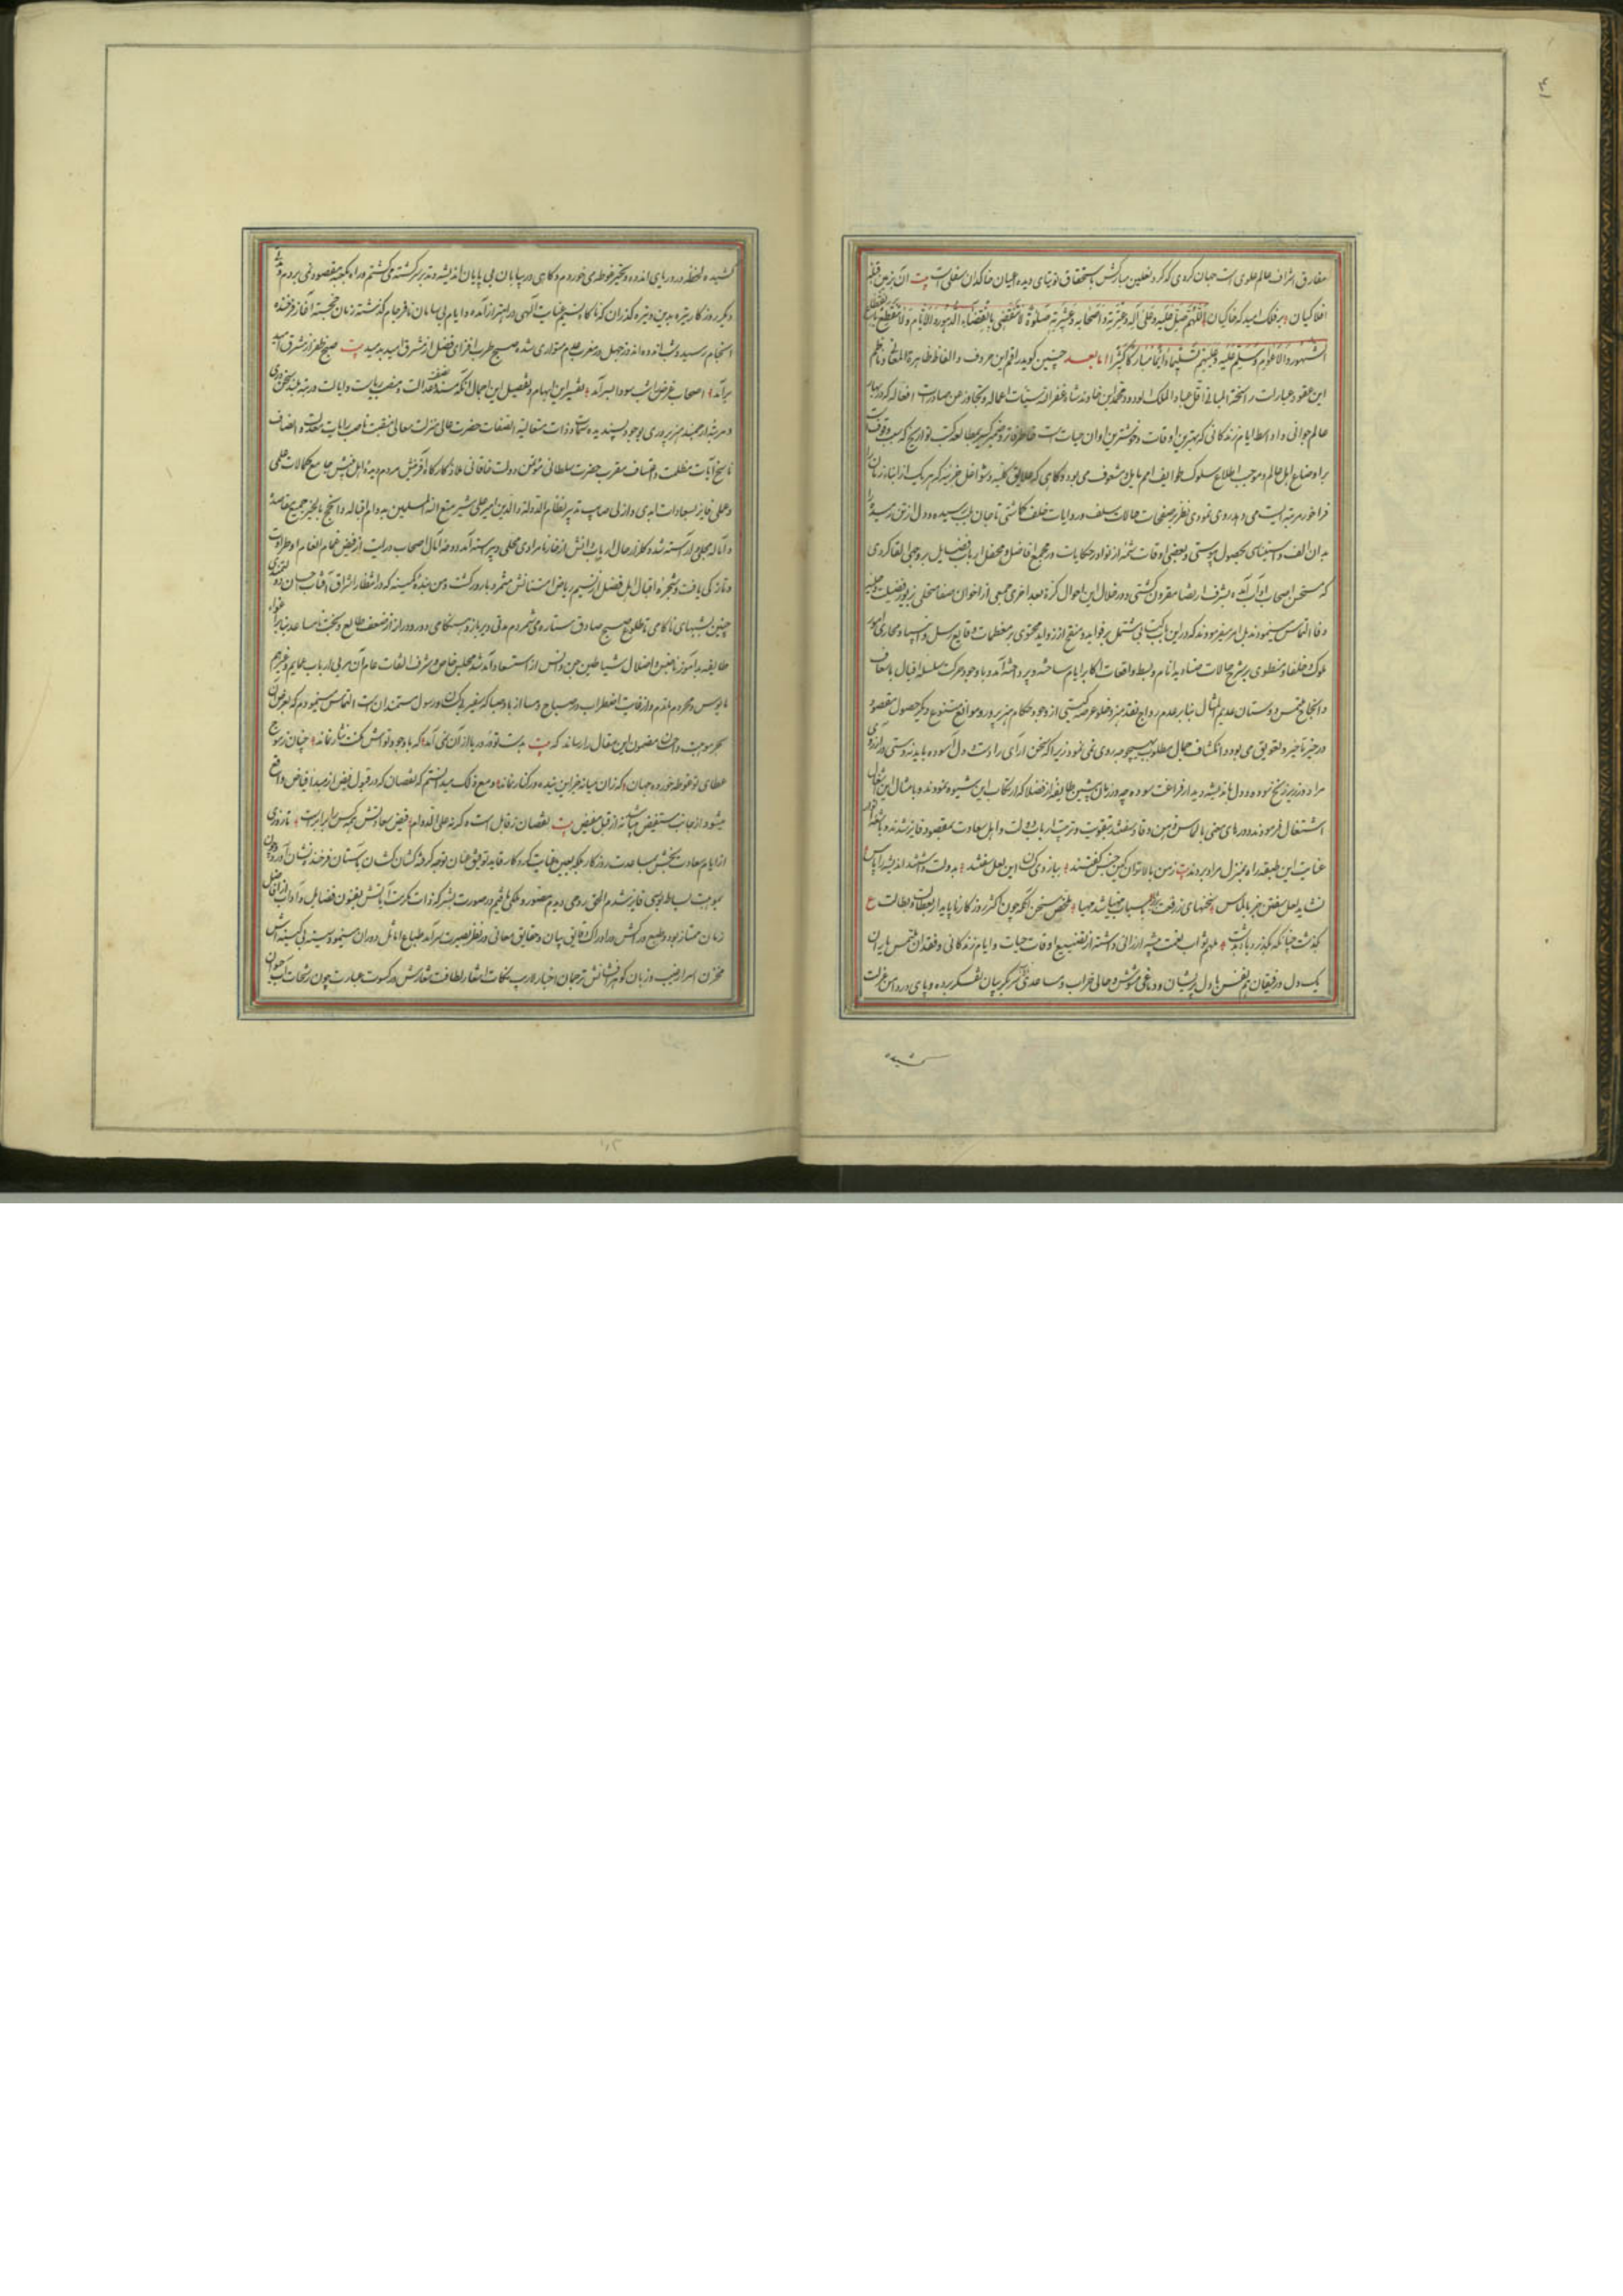 مفارق اشراف عالم علوی است جهان کردی که کرد نعلین مبارکش باستحقاق توتیای دیده اعیان خاکدان سفلی است بیت آن بزمین قبله
افلاکیان بر فلک امید که خاکیان اللهم صل علیه و علی آله و عترته و اصحابه و عشیرته صلوة لا تنقضی بانقضاء الدهور و الایام و لا تنقطع
الشهور و الاعوام و سلم علیه و علیهم تسلیما دائما مبارکا کثیرا اما بعد چنین گوید راقم این حروف و الفاظ ظاهرة المعانی و ناظم
این عقود عبارات راسخة المبانی اقل عباد الملک الودود محمد ابن خاوندشاه غفر الله سیئات اعماله و تجاوز عن صادرات افعاله که در بهار
عالم جوانی و اواسط ایام زندگانی که بهترین اوقات و خوشترین اوان حیات است خاطر فاتر و ضمیر کسیر بمطالعه کتب تواریخ که سبب وقوفست
بر اوضاع اهل عالم و موجب اطلاع سلوک طوایف امم مایل و مشعوف می بود و گاهی که علایق کلیه و شواغل جزئیه که هر یک از ابناء زمان را
فراخور مرتبه دست می دهد روی نمودی نظر بر صفحات حالات سلف و روایات خلف گماشتی تا جان بلب رسیده و دل از تن رمیده را
بدان الف و استیناس بحصول پیوستی و بعضی اوقات شمه از نوادر حکایات در مجمع افاضل و محفل ارباب فضایل بر وجهی القا کردی
که مستحسن اصحاب آداب آمده بشرف ارتضا مقرون گشتی و در خلال این احوال کرة بعد اخری جمعی از اخوان صفا متحلی بزیور فضیلت و حلیه
وفا التماس مینمودند بل امر میفرمودند که در این باب کتابی مشتمل بر فواید و منقح از زواید محتوی بر معظمات وقایع رسل و انبیا و مجاری امور
ملوک و خلفا و منطوی بر شرح حالات صنادید انام و بسط واقعات اکابر ایام ساخته و پرداخته آمد و با وجود حرکت سلسله اقبال باسعاف
و انجاح ملتمس دوستان عدیم المثال بنابر عدم رواج نقد هنر و خلو عرصه گیتی از وجود حکام هنرپرور و مواقع متنوع دیگر حصول مقصود
در حیز تاخیر و تعویق می بود و انکشاف جمال مطلوب بهیچوجه روی نمی نمود زیرا که سخن آرای را دست و دل آسوده باید نه دستی در آرزوی
مراد در زیر زنخ نموده و دل ماندیشه دیدار فراغت سوده چه در زمان پیشین طایفه از فضلا که ارتکاب این شیوه نمودند و بامثال این اشغال
اشتغال فرمودند و درهای معنی بالماس ذهن وقاد سفتند بتقویت و تربیت ارباب دولت و اهل سعادت بمقصود فایز شدند و باشعه انوار
عنایت این طبقه راه بمنزل مراد بردند بیت زمن بالاتران کین جنس گفتند بازوی کسان این لعل سفتند بدولت داشتند اندیشه را پاس
نشاید لعل سفتن جز بالماس سخنهای زرفعت اسباب مهیا شد مهیا ملخص سخن آنکه چون اکثر روزگار ناپایدار بعطلت و بطالت ع
بگذشت چنانکه بگذرد باد بدشت ملهم ثواب نعمت ارزانی داشته از تضییع اوقات حیات و ایام زندگانی و فقدان ملتمس یاران
یک دل و رفیقان هم نفس با دل پریشان و دماغی مشوش و حالی خراب و مساعدتی سر بگریبان تفکر برده و پای در دامن عزلت
کشیده
کشیده لحظه در دریای اندوه و تحیر غوطه می خوردم و گاهی در بیابان بی پایان اندیشه و تدبیر سرگشته می گشتم و راه بکعبه مقصود نمی بردم
دیگر روزگار تیره بدین وتیره گذران که ناگاه نسیم عنایت الهی در اهتزاز آمده و ایام بی سامان نافرجام گذشته زمان خجسته آغاز فرخنده
انجام رسید و شب اندوه اندوز جهل در مغرب عدم متواری شده صبح طرب افزای فضل از مشرق امید بدمید بیت صبح ظفر از مشرق امید
برآمد اصحاب غرض را شب سودا بسر آمد تفسیر این ابهام و تفصیل این اجمال آنکه مسند عدالت و منصب ریاست و ایالت و رتبه بلند سخنوری
و مرتبه ارجمند هنرپروری بوجود پسندیده سمات و ذات متعالیة الصفات حضرت عالی منزلت معالی منقبت ناصب رایات معدلت و انصاف
ناسخ آیات مظلمت و اعتساف مقرب حضرت سلطانی مؤتمن دولت خاقانی ملاذ کارگاه آفرینش مردم دیده اهل بینش جامع کمالات علمی
و عملی فایز بسعادات ابدی و ازلی صایب تدبیر نظام الدولة و الدین امیر علی شیر متع الله المسلمین بدوام اقباله و انجح بالخیر جمیع مقاصده
و آماله محلی و آراسته شد و گلزار حال ارباب دانش از خار نامرادی مخلی و پیراسته آمد و روضه آمال اصحاب درایت از فیض غمام انعام او طراوت
و تازگی یافت و شجره اقبال اهل فضل از نسیم ریاض امتنانش مثمر و بارور گشت و من بنده کمینه که در انتظار اشراق آفتاب احسان خداوندی
چنین شبهای ناکامی تا طلوع صبح صادق ستاره می شمردم مدتی دیرباز و هنگامی دور و دراز از ضعف طالع و بخت نامساعد بنابر اغواء
طایفه بدآموز ناجنس و اضلال شیاطین جن و انس از استسعاد آمد شد مجلس خاص و شرف التفات عام آن مربی ارباب عمایم و غیرهم
مایوس و محروم ماندم و از غایت اضطراب در صباح و مسا از باد صبا که سفیر بی کسان و رسول مستمندان است التماس مینمودم که بعرض آن
بحر موهبت و احسان مضمون این مقال را رساند که بیت بدست تو در دریا از آن نمی آید که با وجود نوالش کفت نثار نماند چنان ز موج
عطای تو غوطه خورده جهان که زان میانه جز این بنده در کنار نماند و مع ذلک میدانستم که نقصان که در قبول فیض از مبدأ فیاض واقع
میشود از جانب مستفیض میباشد نه از قبل مفیض بیت نقصان ز قابل است و گرنه علی الدوام فیض سعادتش همه کس را برابر است تا روزی
از ایام سعادت بخش مساعدت روزگار بلکه بعین عنایت کردگار قاید توفیق عنان توجه گرفته کشان کشان بآستان فرخنده نشان آورد و چون
بموهبت بساط بوسی فایز شدم الحق روحی دیدم مصور و ملکی یافتم در صورت بشر که ذات مکرمت آیاتش بفنون فضایل و آداب از افاضل
زمان ممتاز بود و طبع دراکش در ادراک دقایق بیان و حقایق معانی در نظر بصیرت سرآمد طباع اماثل دوران مینمود سینه بی کینه اش
مخزن اسرار غیب و زبان گوهرفشانش ترجمان اخبار لاریب نکات اشعار لطافت شعارش در کسوت عبارت چون رشحات آب حیوان